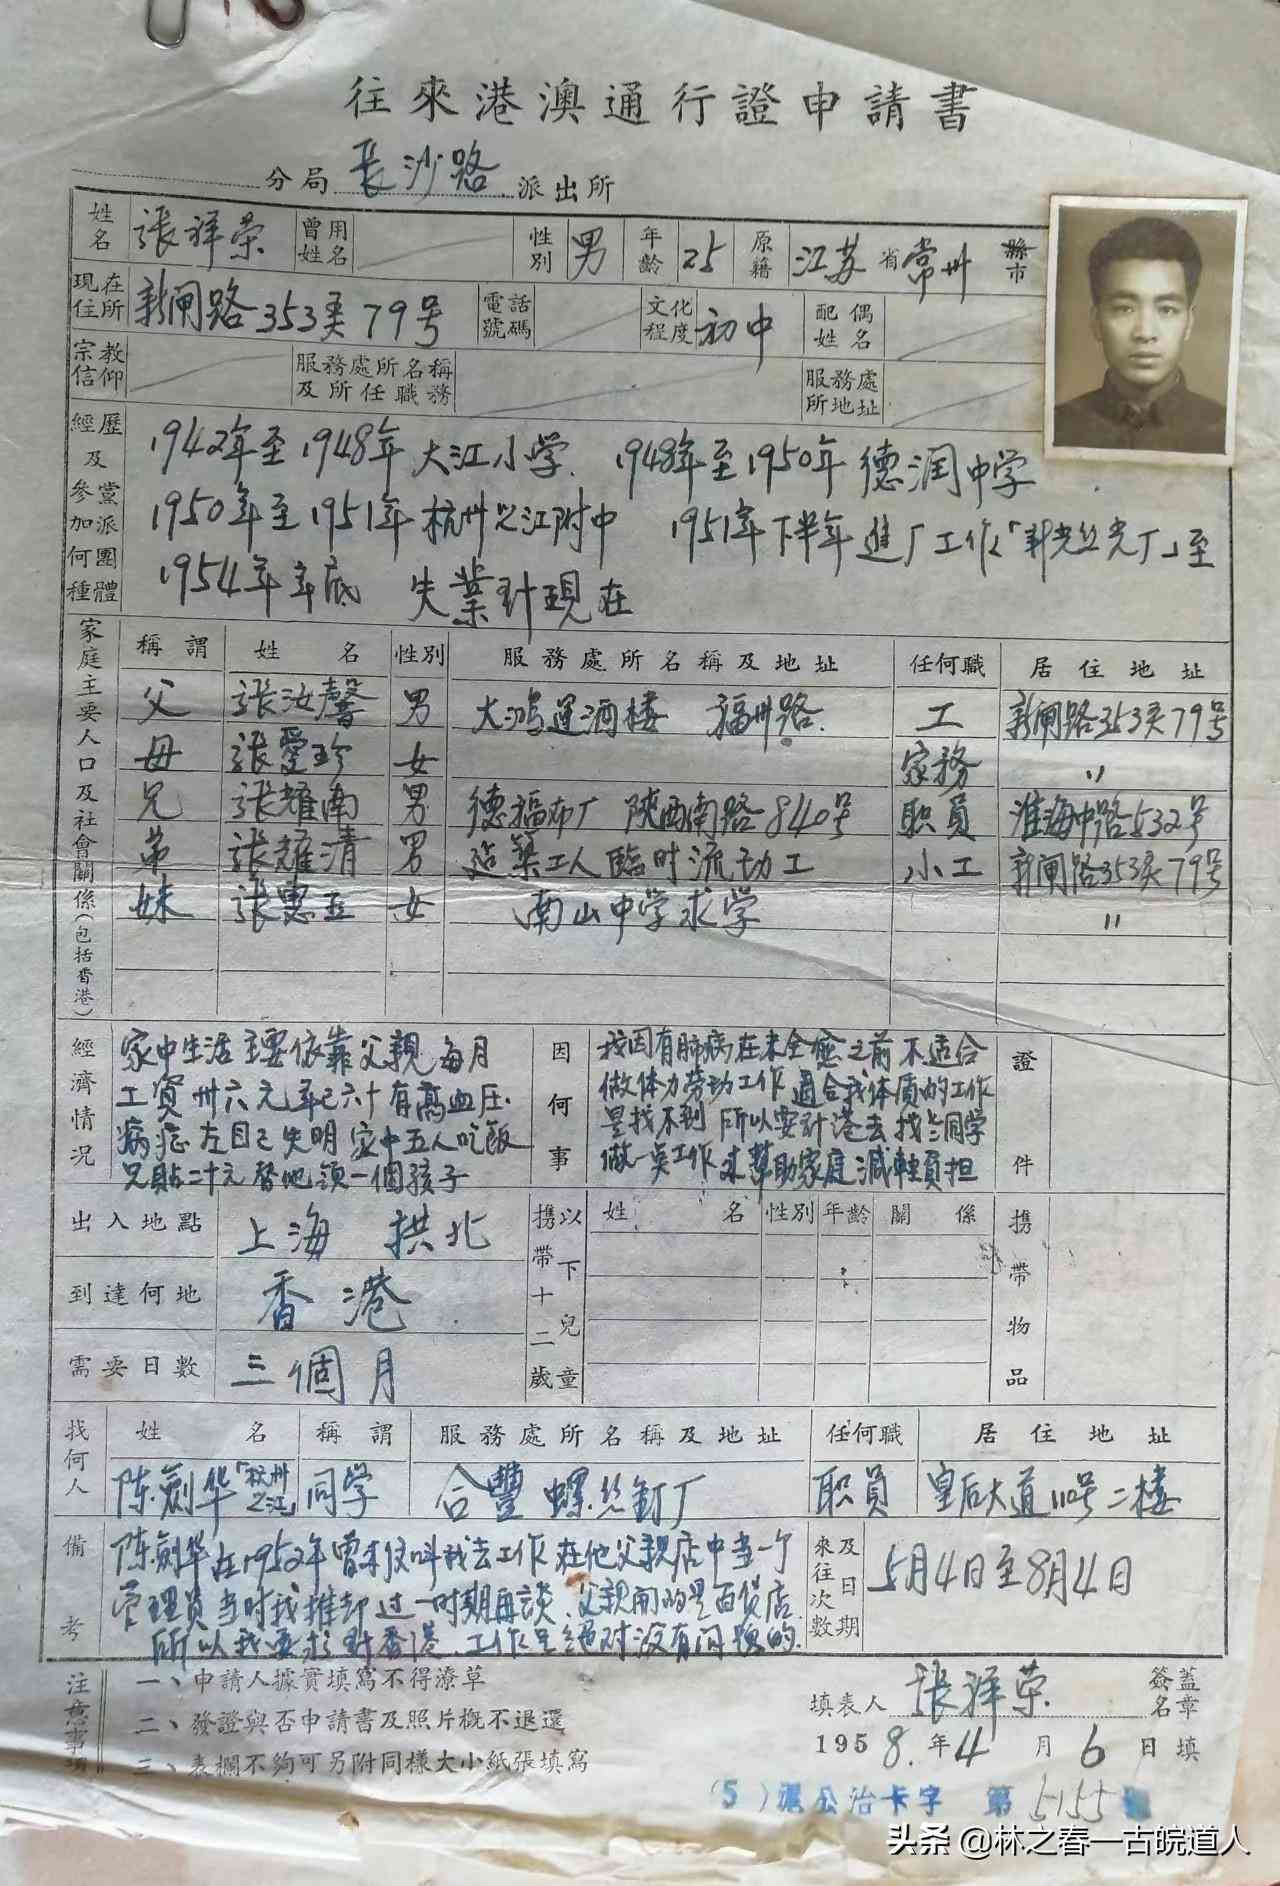 往來港澳通行證申請書
分局 長沙路 派出所
姓名 張祥荣 曾用姓名 性別 男 年齡 25 原籍 江苏 省 常州 縣市
現在住所 新闸路353弄79号 電話號碼 文化程度 初中 配偶姓名
宗教信仰 服務處所名稱及所任職務 服務處所地址
經歷及參加何種黨派團體
1942年至1948年 大江小学. 1948年至1950年 德润中学
1950年至1951年 杭州之江附中 1951年下半年進厂工作「新光丝光厂」至
1954年年底 失業到現在
家庭主要人口及社會關係(包括香港)
稱謂 姓名 性別 服務處所名稱及地址 任何職 居住地址
父 張汝馨 男 大鴻運酒楼 福州路. 工 新闸路353弄79号
母 張愛珍 女 家務 〃
兄 張耀南 男 德福布厂 陝西南路840号 职員 淮海中路532号
弟 張耀清 男 造築工人臨时流动工 小工 新闸路353弄79号
妹 張惠 女 南山中学求学 〃
經濟情况
家中生活主要依靠父親每月
工資卅六元年已六十有高血压
病症左目已失明家中五人吃飯
兄貼二十元替他領一個孩子
因何事
我因有肺病在未全癒之前不适合
做体力劳动工作適合我体质的工作
是找不到所以要到港去找同学
做一点工作来幫助家庭減輕負担
證件
出入地點 上海 拱北
到達何地 香港
需要日數 三個月
携帶十二歲以下兒童 姓名 性別 年齡 關係
携帶物品
找何人 姓名 稱謂 服務處所名稱及地址 任何職 居住地址
陈劍华「杭州之江」 同学 合豐螺丝釘厂 职員 皇后大道110号二楼
備考
陈劍华在1952年曾来信叫我去工作在他父親店中当一个
管理員当时我推却过一时期再談.父親開的是百货店.
所以我要求到香港.工作是絕对没有问題的.
來往次數及日期 5月4日至8月4日
注意事項
一、申請人據實填寫不得潦草
二、發證與否申請書及照片概不退還
三、表欄不夠可另附同樣大小紙張填寫
填表人 張祥荣 簽名蓋章
1958.年4月6日填
(5)滬公治卡字 第5155號
头条 @林之春一古皖道人